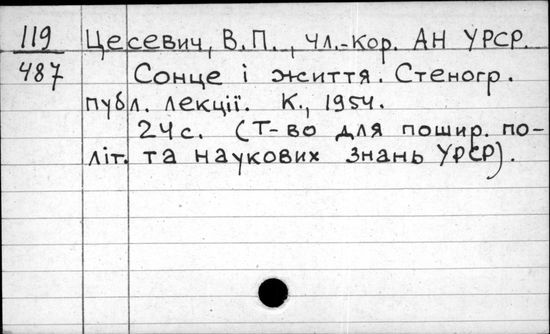 119 Цесевич, В.П., чл.-кор. АН УРСР.
487 Сонце і життя. Стеногр.
публ. лекції. К., 1954.
24с. (Т-во для пошир. по-
літ. та наукових знань УРСР).